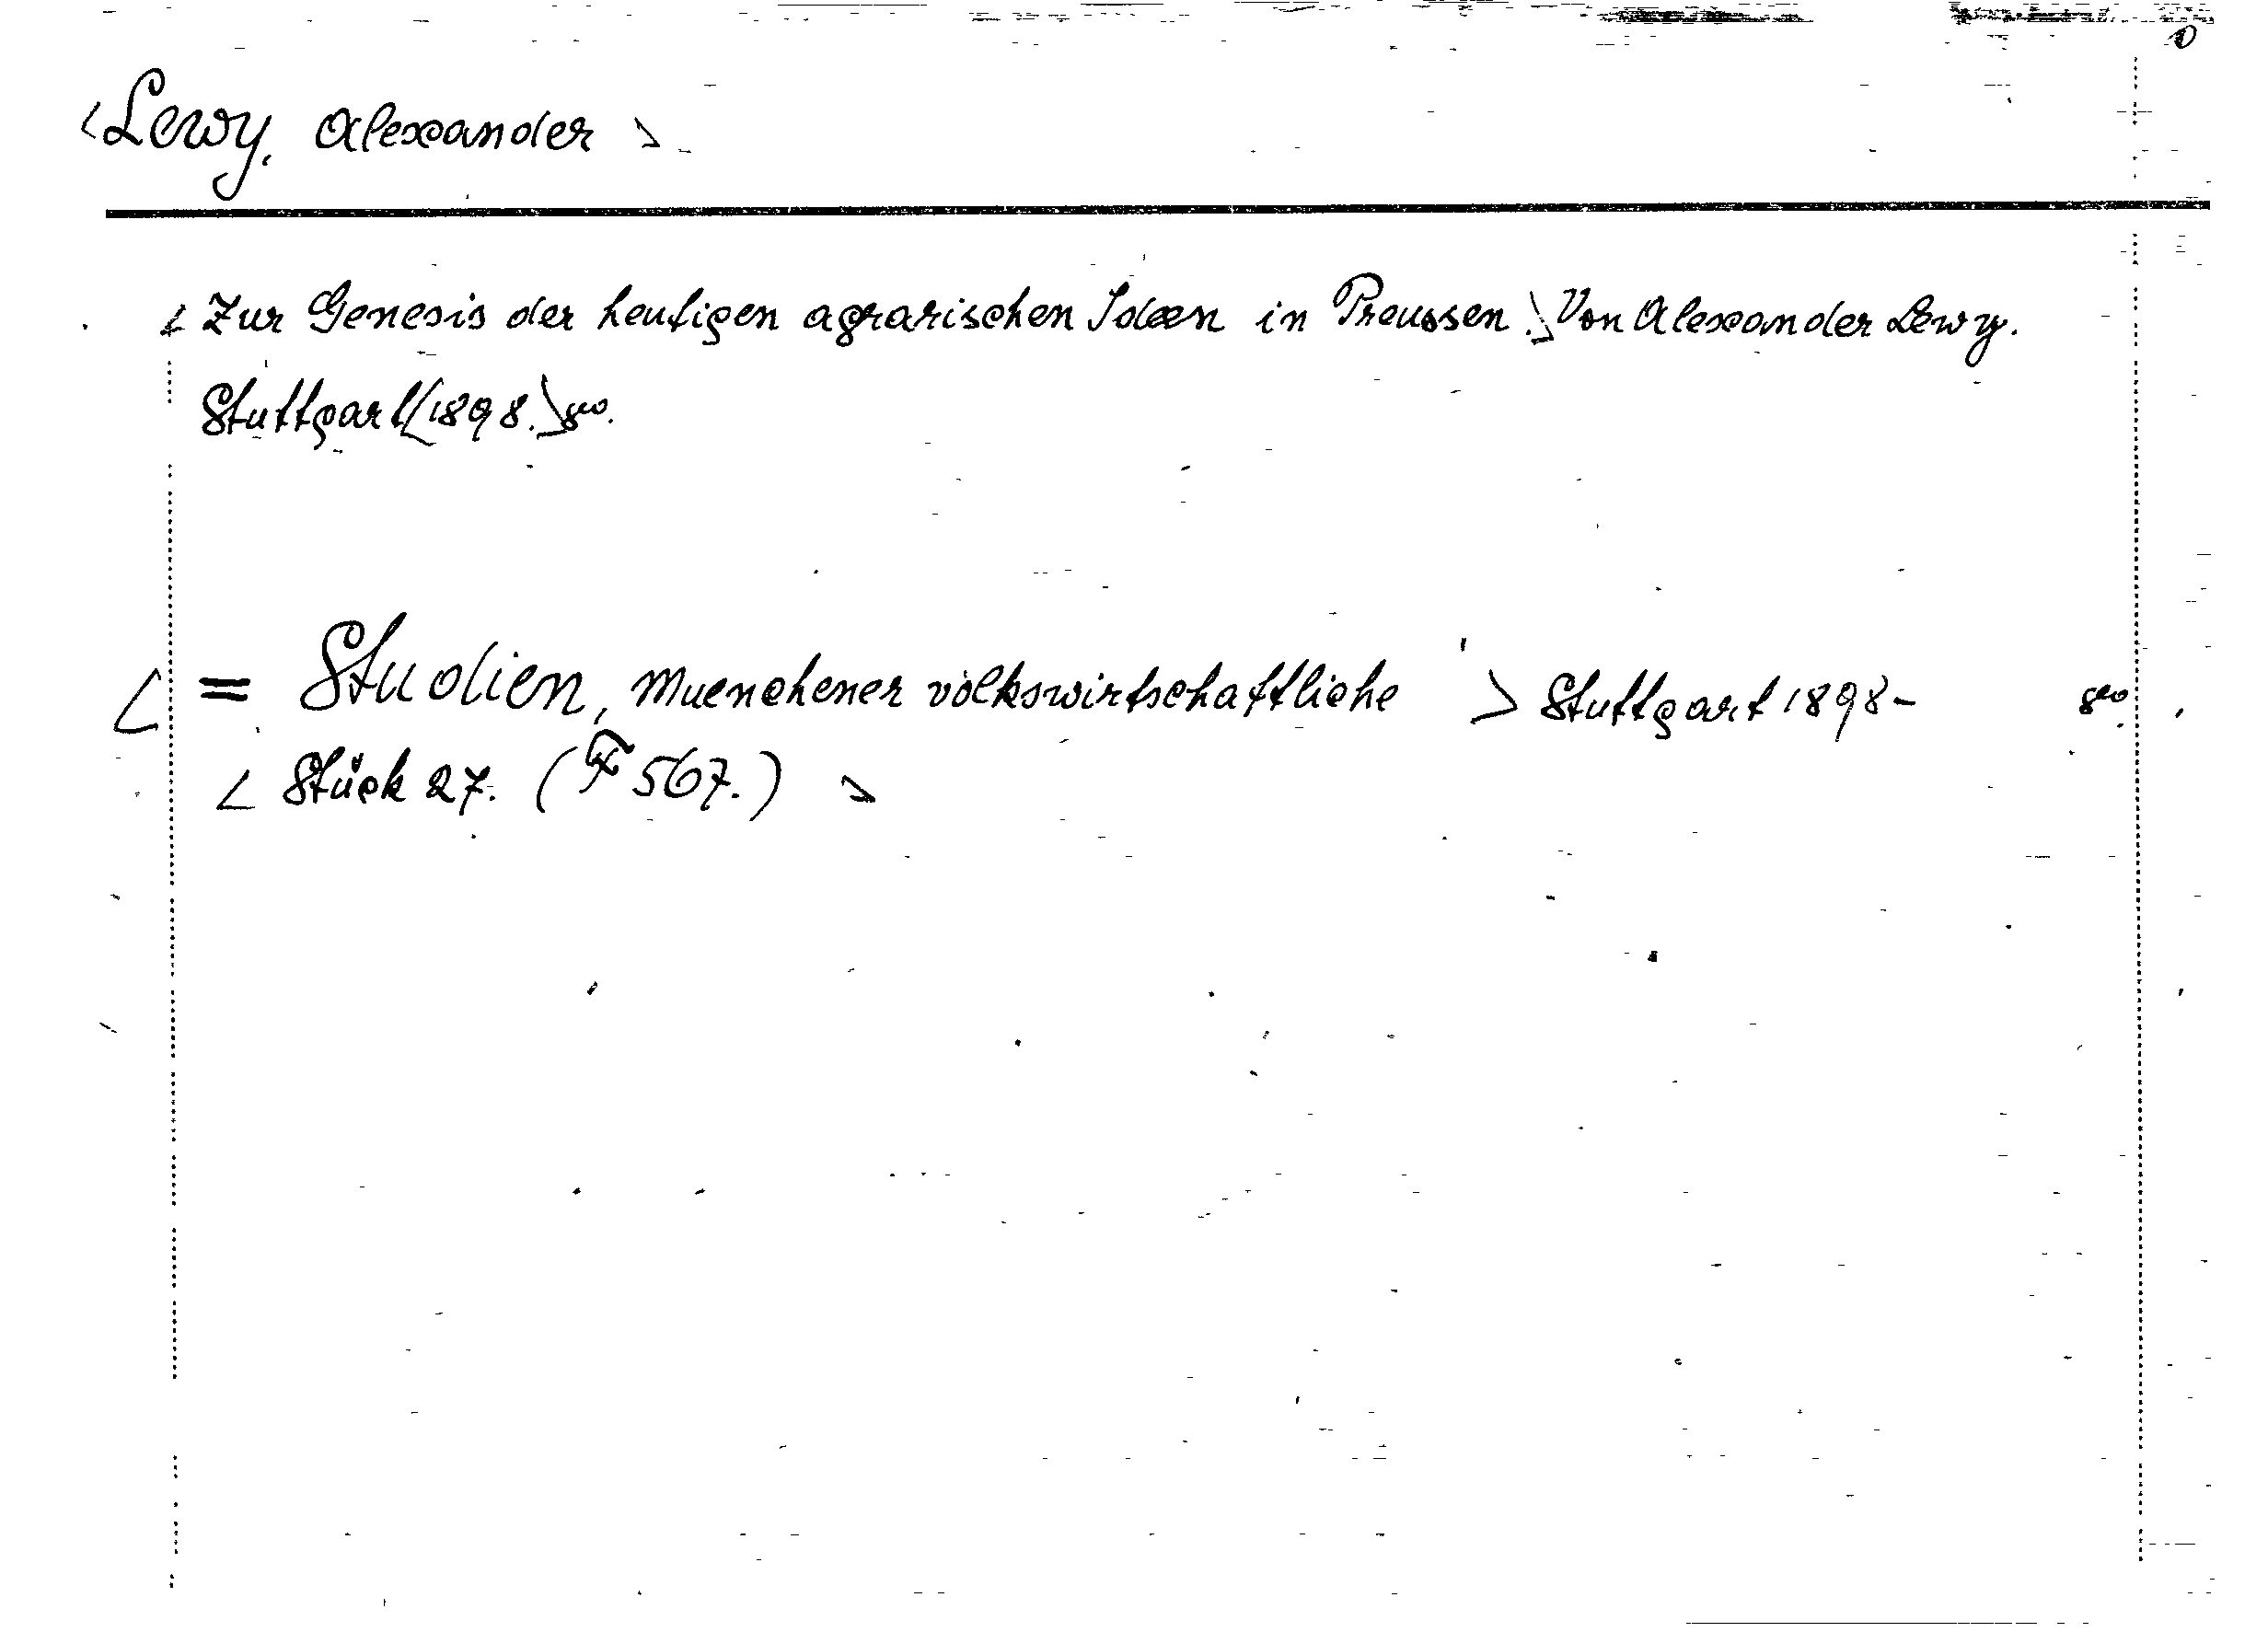 <Lewy, Alexander>
<Zur Genesis der heutigen agrarischen Ideen in Preussen.> Von Alexander Lewy.
Stuttgart <1898.> 8vo.
<= Studien, Muenchener volkswirtschaftliche > Stuttgart 1898- 8vo.
< Stück 27. (F 567.) >